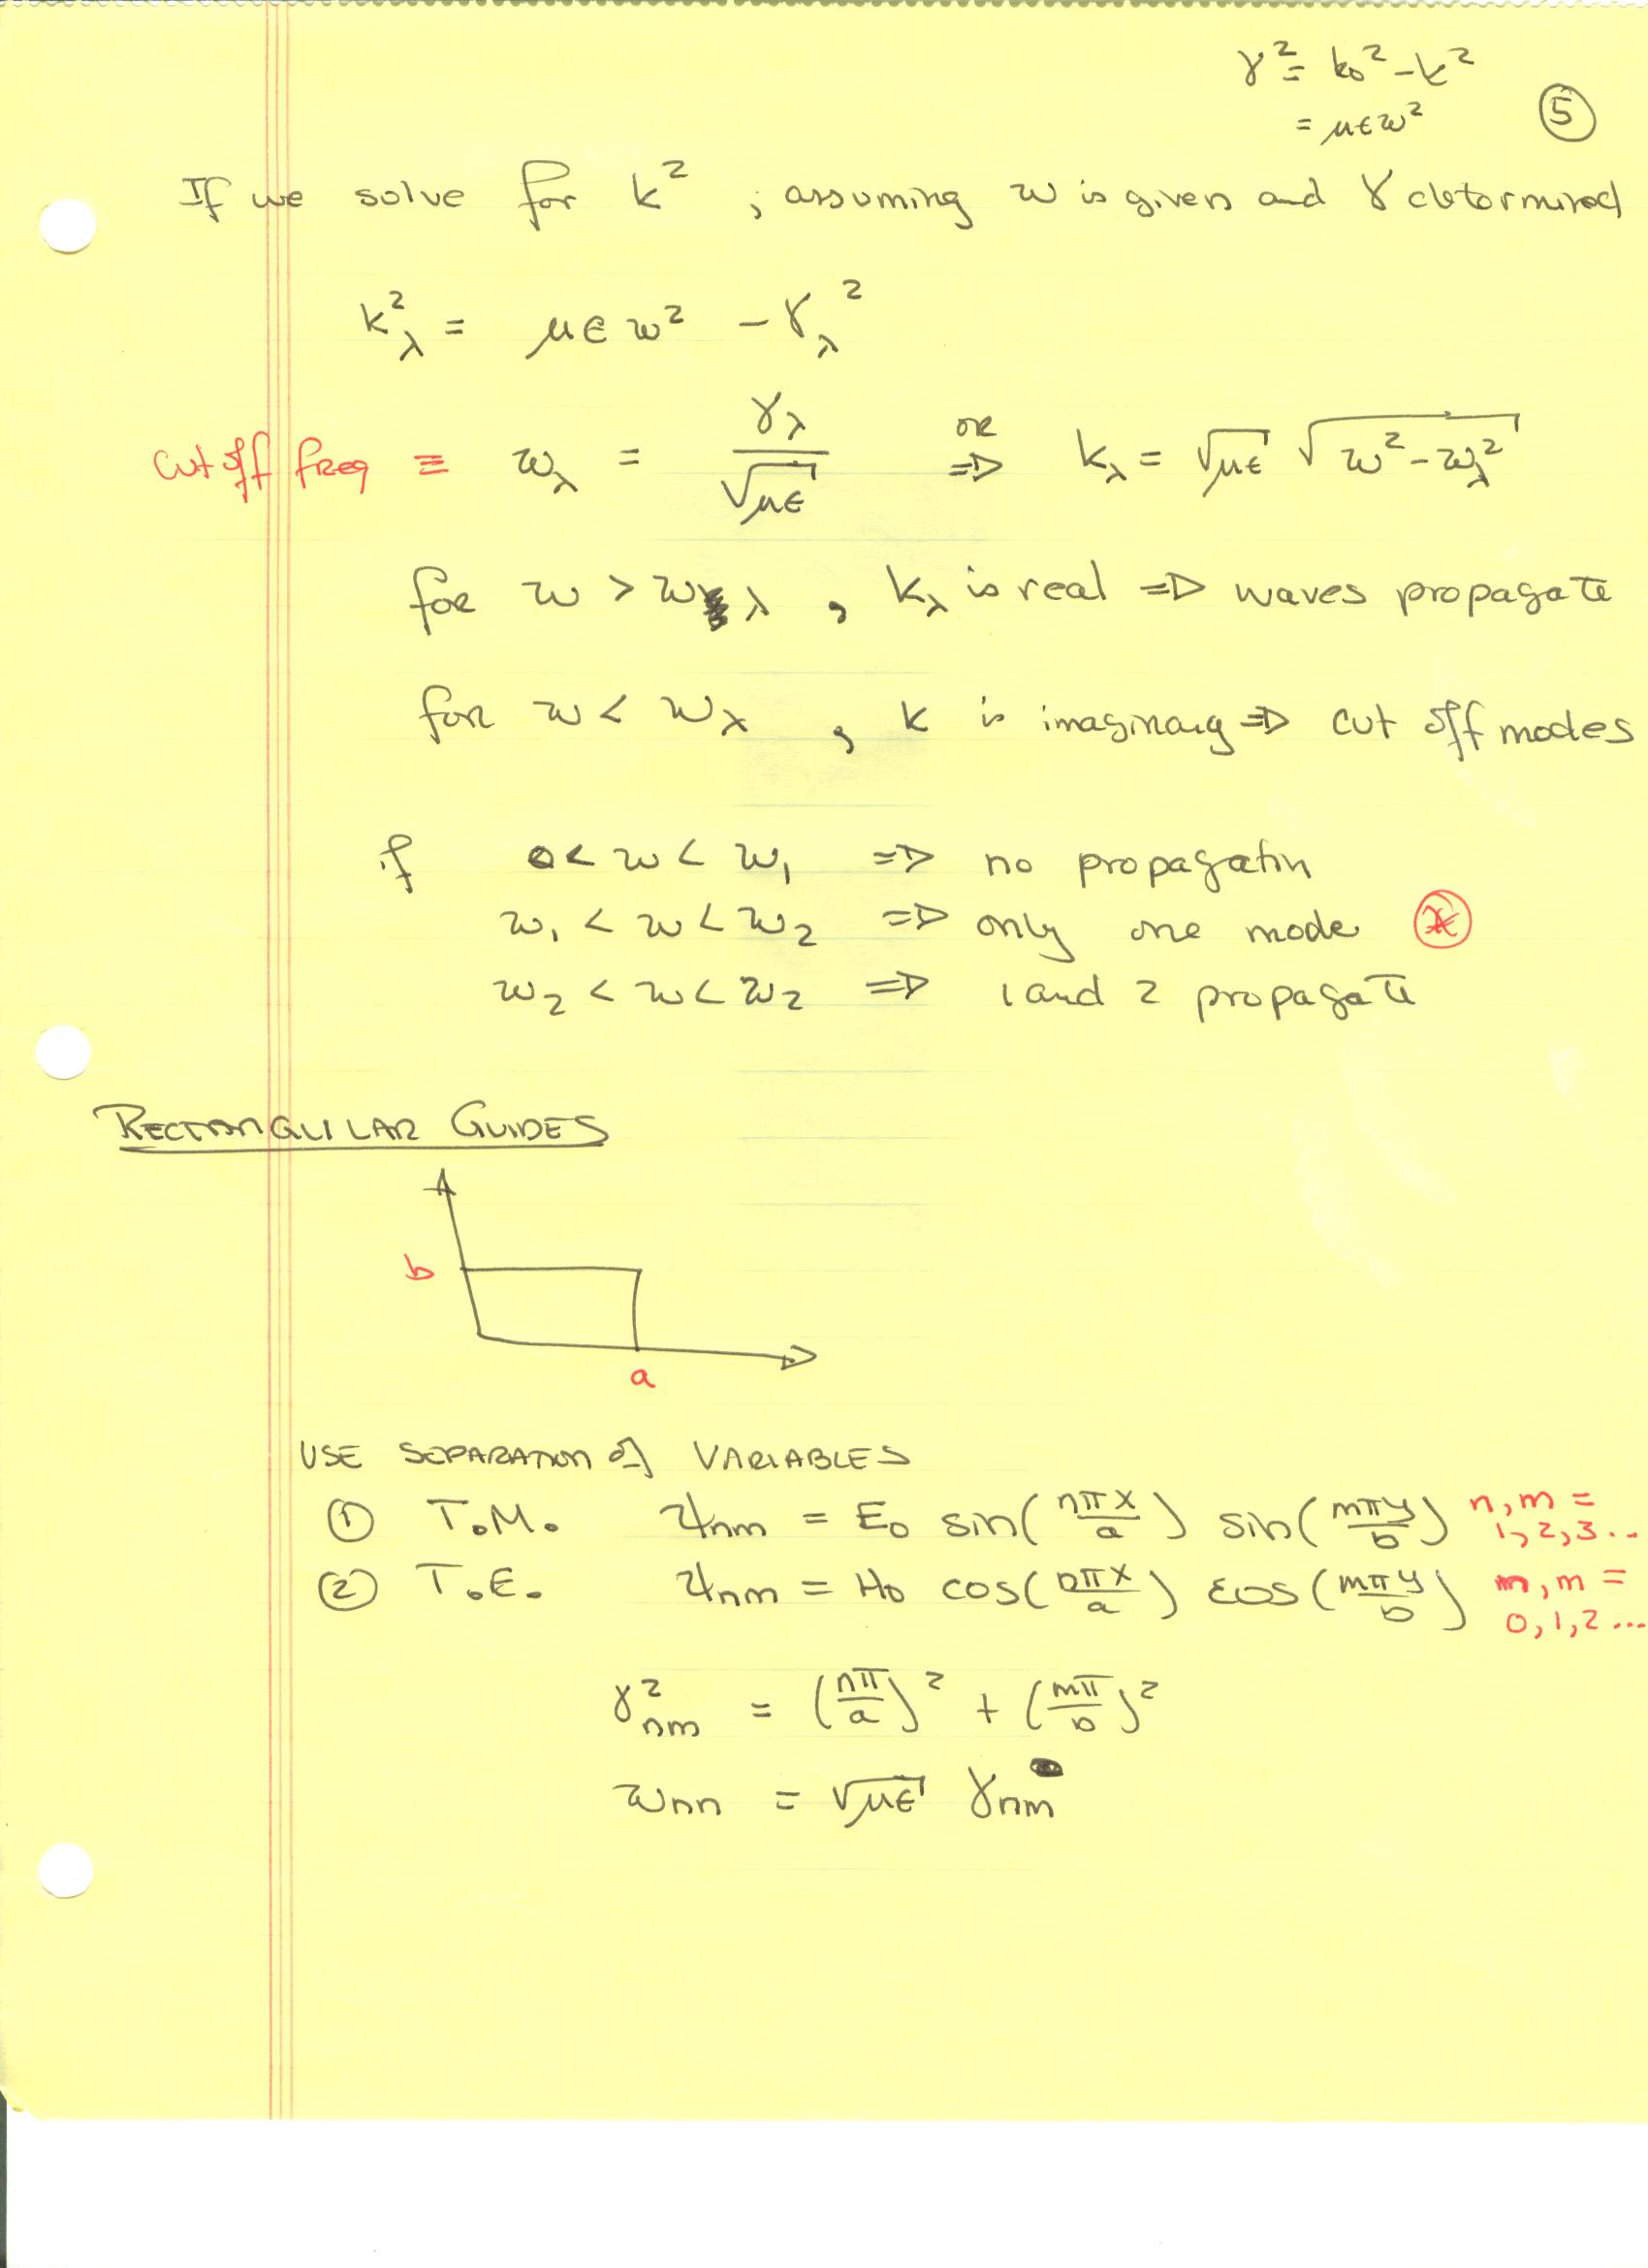 γ² = k₀² - k²
= μϵω²
⑤
If we solve for k² ; assuming ω is given and γ determined
k²_λ = μϵω² - γ_λ²
Cut off freq ≡ ω_λ = γ_λ / √μϵ or ⇒ k_λ = √μϵ √(ω² - ω_λ²)
for ω > ω_λ , k_λ is real ⇒ waves propagate
for ω < ω_λ , k is imaginary ⇒ cut off modes
if 0 < ω < ω₁ ⇒ no propagation
ω₁ < ω < ω₂ ⇒ only one mode ⊛
ω₂ < ω < ω₂ ⇒ 1 and 2 propagate
RECTANGULAR GUIDES
b
a
USE SEPARATION of VARIABLES
① T.M. ψnm = E₀ sin(nπx/a) sin(mπy/b) n,m = 1,2,3..
② T.E. ψnm = H₀ cos(nπx/a) cos(mπy/b) m,m = 0,1,2...
γ²nm = (nπ/a)² + (mπ/b)²
ωnn = √μϵ γnm